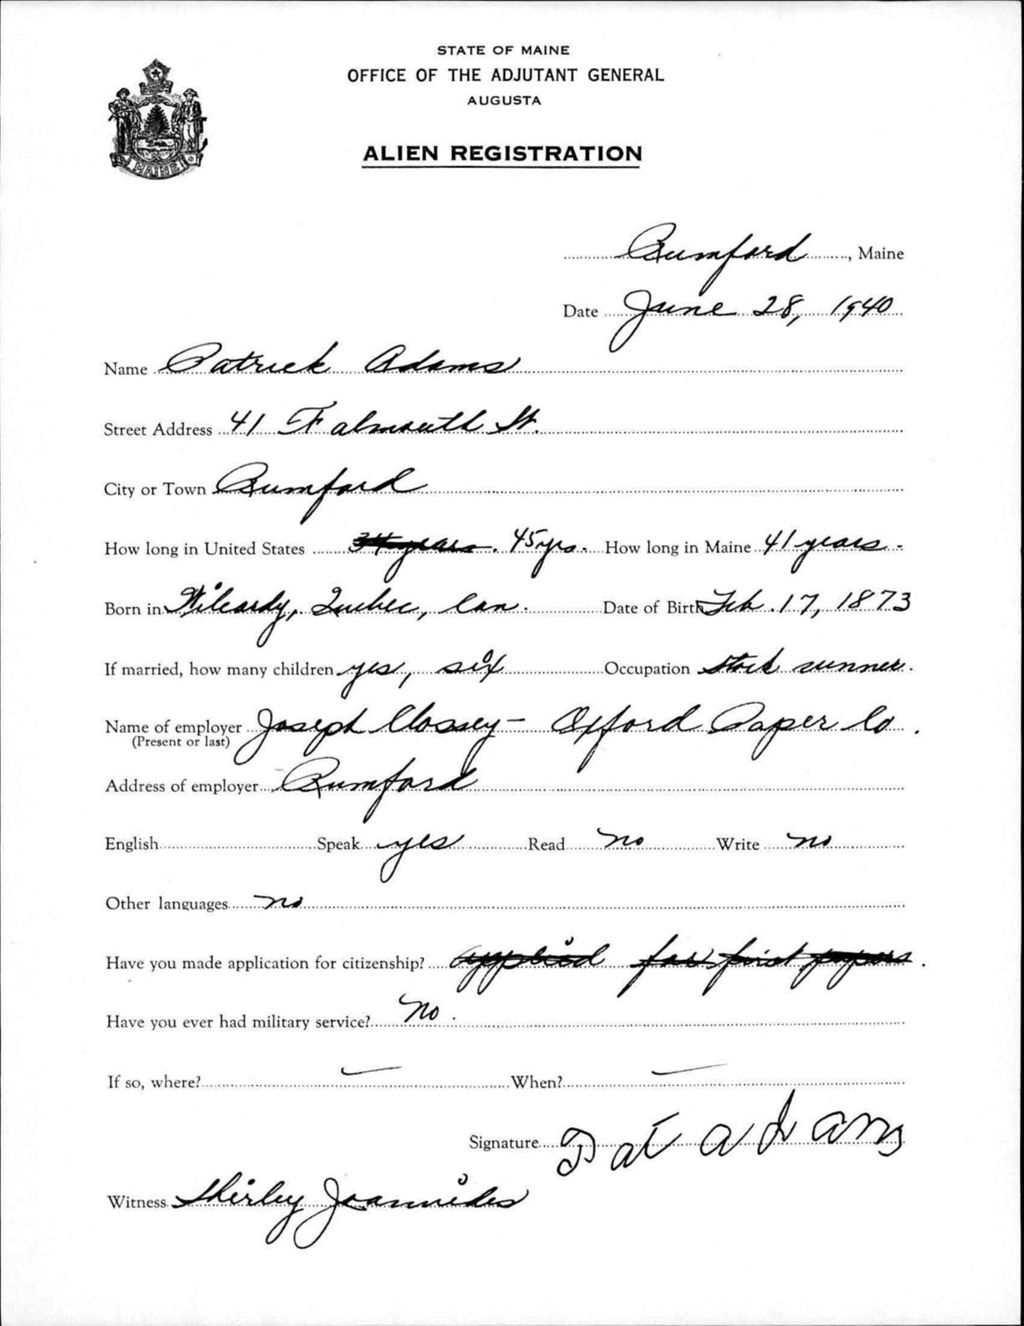 STATE OF MAINE
OFFICE OF THE ADJUTANT GENERAL
AUGUSTA
ALIEN REGISTRATION
MAINE
Rumford, Maine
Date June 28, 1940
Name Patrick Adams
Street Address 41 Falmouth St.
City or Town Rumford
How long in United States 34 years. 45 yrs. How long in Maine 41 years.
Born in Quebec, Can. Date of Birth Feb. 17, 1873
If married, how many children yes, six Occupation Stock runner.
Name of employer Joseph Clossey - Oxford Paper Co.
(Present or last)
Address of employer Rumford
English Speak yes Read no Write no
Other languages no
Have you made application for citizenship? applied for first papers.
Have you ever had military service? No.
If so, where? — When? —
Signature Pat adams
Witness Shirley Joannides